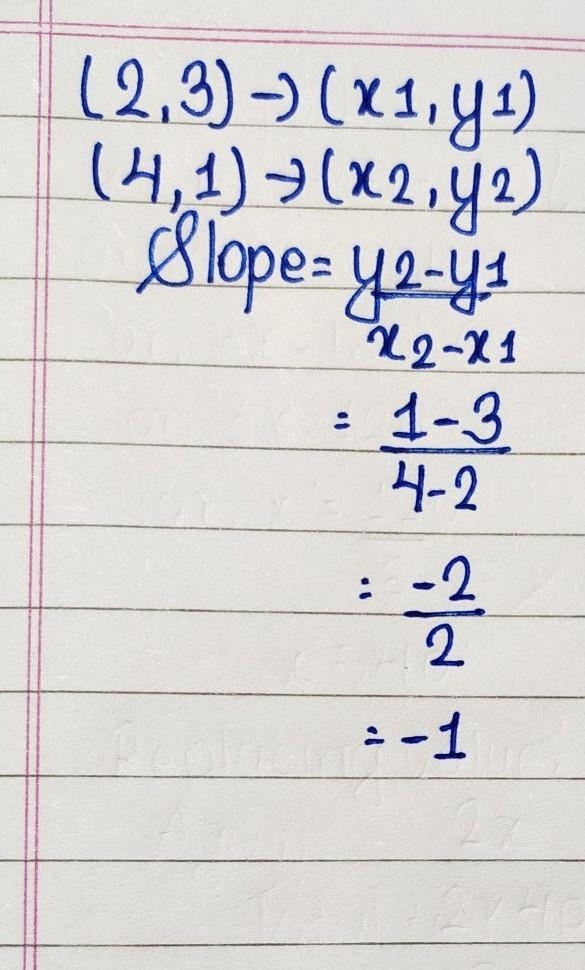 (2,3)→(x1,y1)
(4,1)→(x2,y2)
Slope= y2-y1
x2-x1
= 1-3
4-2
= -2
2
= -1